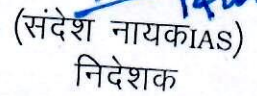 (संदेश नायकIAS)
निदेशक